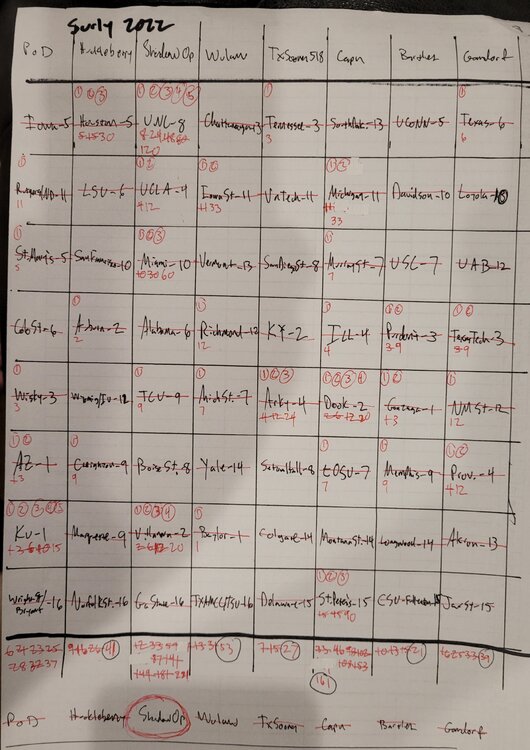 Surly 2022
PoD Huckleberry ShadowOp Wulaw TxSooner518 Capn Barthes Gondorf
① ② ③ ① ② ③ ④ ⑤ ① ①
Iowa-5 Houston-5 UNC-8 Chattanooga-13 Tennessee-3 South Dak-13 UCONN-5 Texas-6
5 15 30 8 24 48 80 3 6
120
① ① ② ① ② ① ②
Rutgers/ND-11 LSU-6 UCLA-4 Iowa St-11 Va Tech-11 Michigan-11 Davidson-10 Loyola-10
11 4 12 11 33 11
33
① ① ② ③ ①
St. Mary's-5 San Francisco-10 Miami-10 Vermont-13 San Diego St-8 Murray St-7 USC-7 UAB-12
5 10 30 60 7
① ① ① ① ② ① ②
Colo St-6 Auburn-2 Alabama-6 Richmond-12 KY-2 ILL-4 Purdue-3 Texas Tech-3
2 12 4 3 9 3 9
① ① ① ① ② ③ ① ② ③ ④ ① ② ①
Wisky-3 Wyoming/IU-12 TCU-9 Mich St-7 Arky-4 Dook-2 Gonzaga-1 NM St-12
3 9 7 4 12 24 2 6 12 20 1 3 12
① ② ① ① ① ① ②
AZ-1 Creighton-9 Boise St-8 Yale-14 Seton Hall-8 tOSU-7 Memphis-9 Prov.-4
1 3 9 7 9 4 12
① ② ③ ④ ⑤ ① ② ③ ④ ①
KU-1 Marquette-9 Villanova-2 Baylor-1 Colgate-14 Montana St-14 Longwood-14 Akron-13
1 3 6 10 15 2 6 12 20 1
① ② ③
Wright St/ Norfolk St-16 Ga State-16 TX A&M CC/TSU-16 Delaware-15 St. Peters-15 CSU-Fullerton-15 Jax St-15
Bryant -16 15 45 90
41 53 27 21 39
161
PoD Huckleberry ShadowOp Wulaw TxSooner Capn Barthes Gondorf